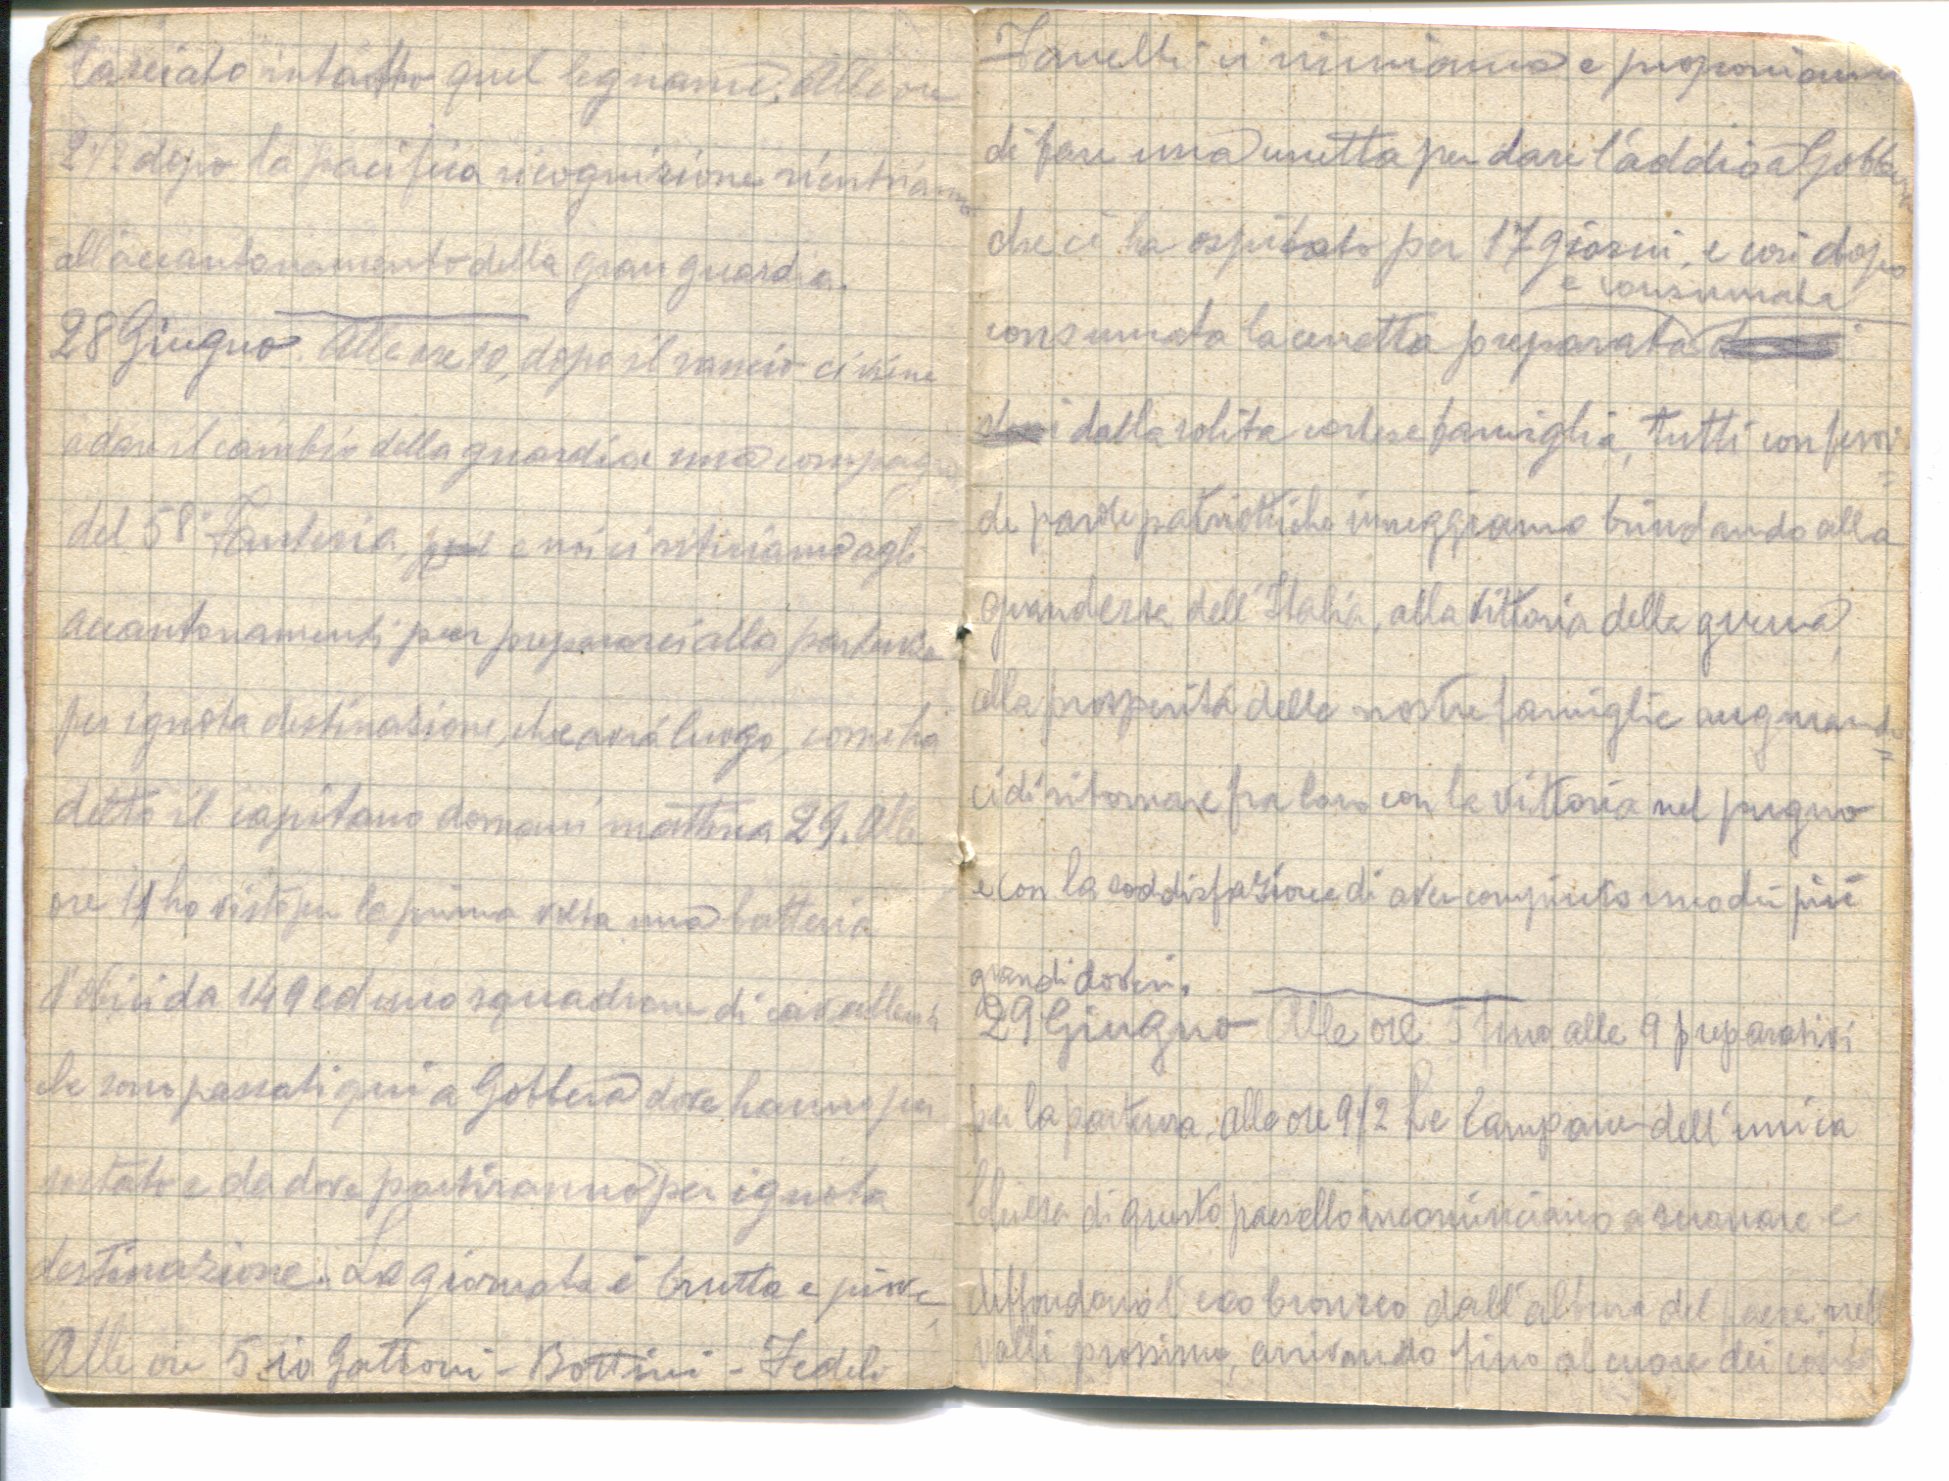 lasciato intatto quel legname. Alle ore
2 1/2 dopo la pacifica ricognizione rientriamo
all'accantonamento della gran guardia.
28 Giugno. Alle ore 10, dopo il rancio ci viene
a dare il cambio della guardia una compagnia
del 58° Fanteria, e noi ci ritiriamo agli
accantonamenti per prepararci alla partenza
per ignota destinazione, che avrà luogo, come ha
detto il capitano domani mattina 29. Alle
ore 11 ho visto per la prima volta una batteria
d'obici da 149 ed uno squadrone di cavalleria
che sono passati qui a Gobbera dove hanno per
nottato e da dove partiranno per ignota
destinazione. La giornata è brutta e piove,
Alle ore 5 io Gattoni - Bottini - Fedeli
Zanelli ci riuniamo e proponiamo
di fare una cenetta per dare l'addio a Gobbera
che ci ha ospitato per 17 giorni, e così dopo
e consumata
consumata la cenetta preparata
dalla solita cortese famiglia, tutti con fervi=
de parole patriottiche inneggiamo brindando alla
grandezza dell'Italia, alla vittoria della guerra,
alla prosperità delle nostre famiglie augurando=
ci di ritornare fra loro con la vittoria nel pugno
e con la soddisfazione di aver compiuto uno dei più
grandi doveri.
29 Giugno Alle ore 5 fino alle 9 preparativi
per la partenza, alle ore 9 1/2 le campane dell'unica
chiesa di questo paesello incominciano a suonare e
diffondono l'eco bronzeo dall'altura del paese nelle
valli prossime, arrivando fino al cuore dei